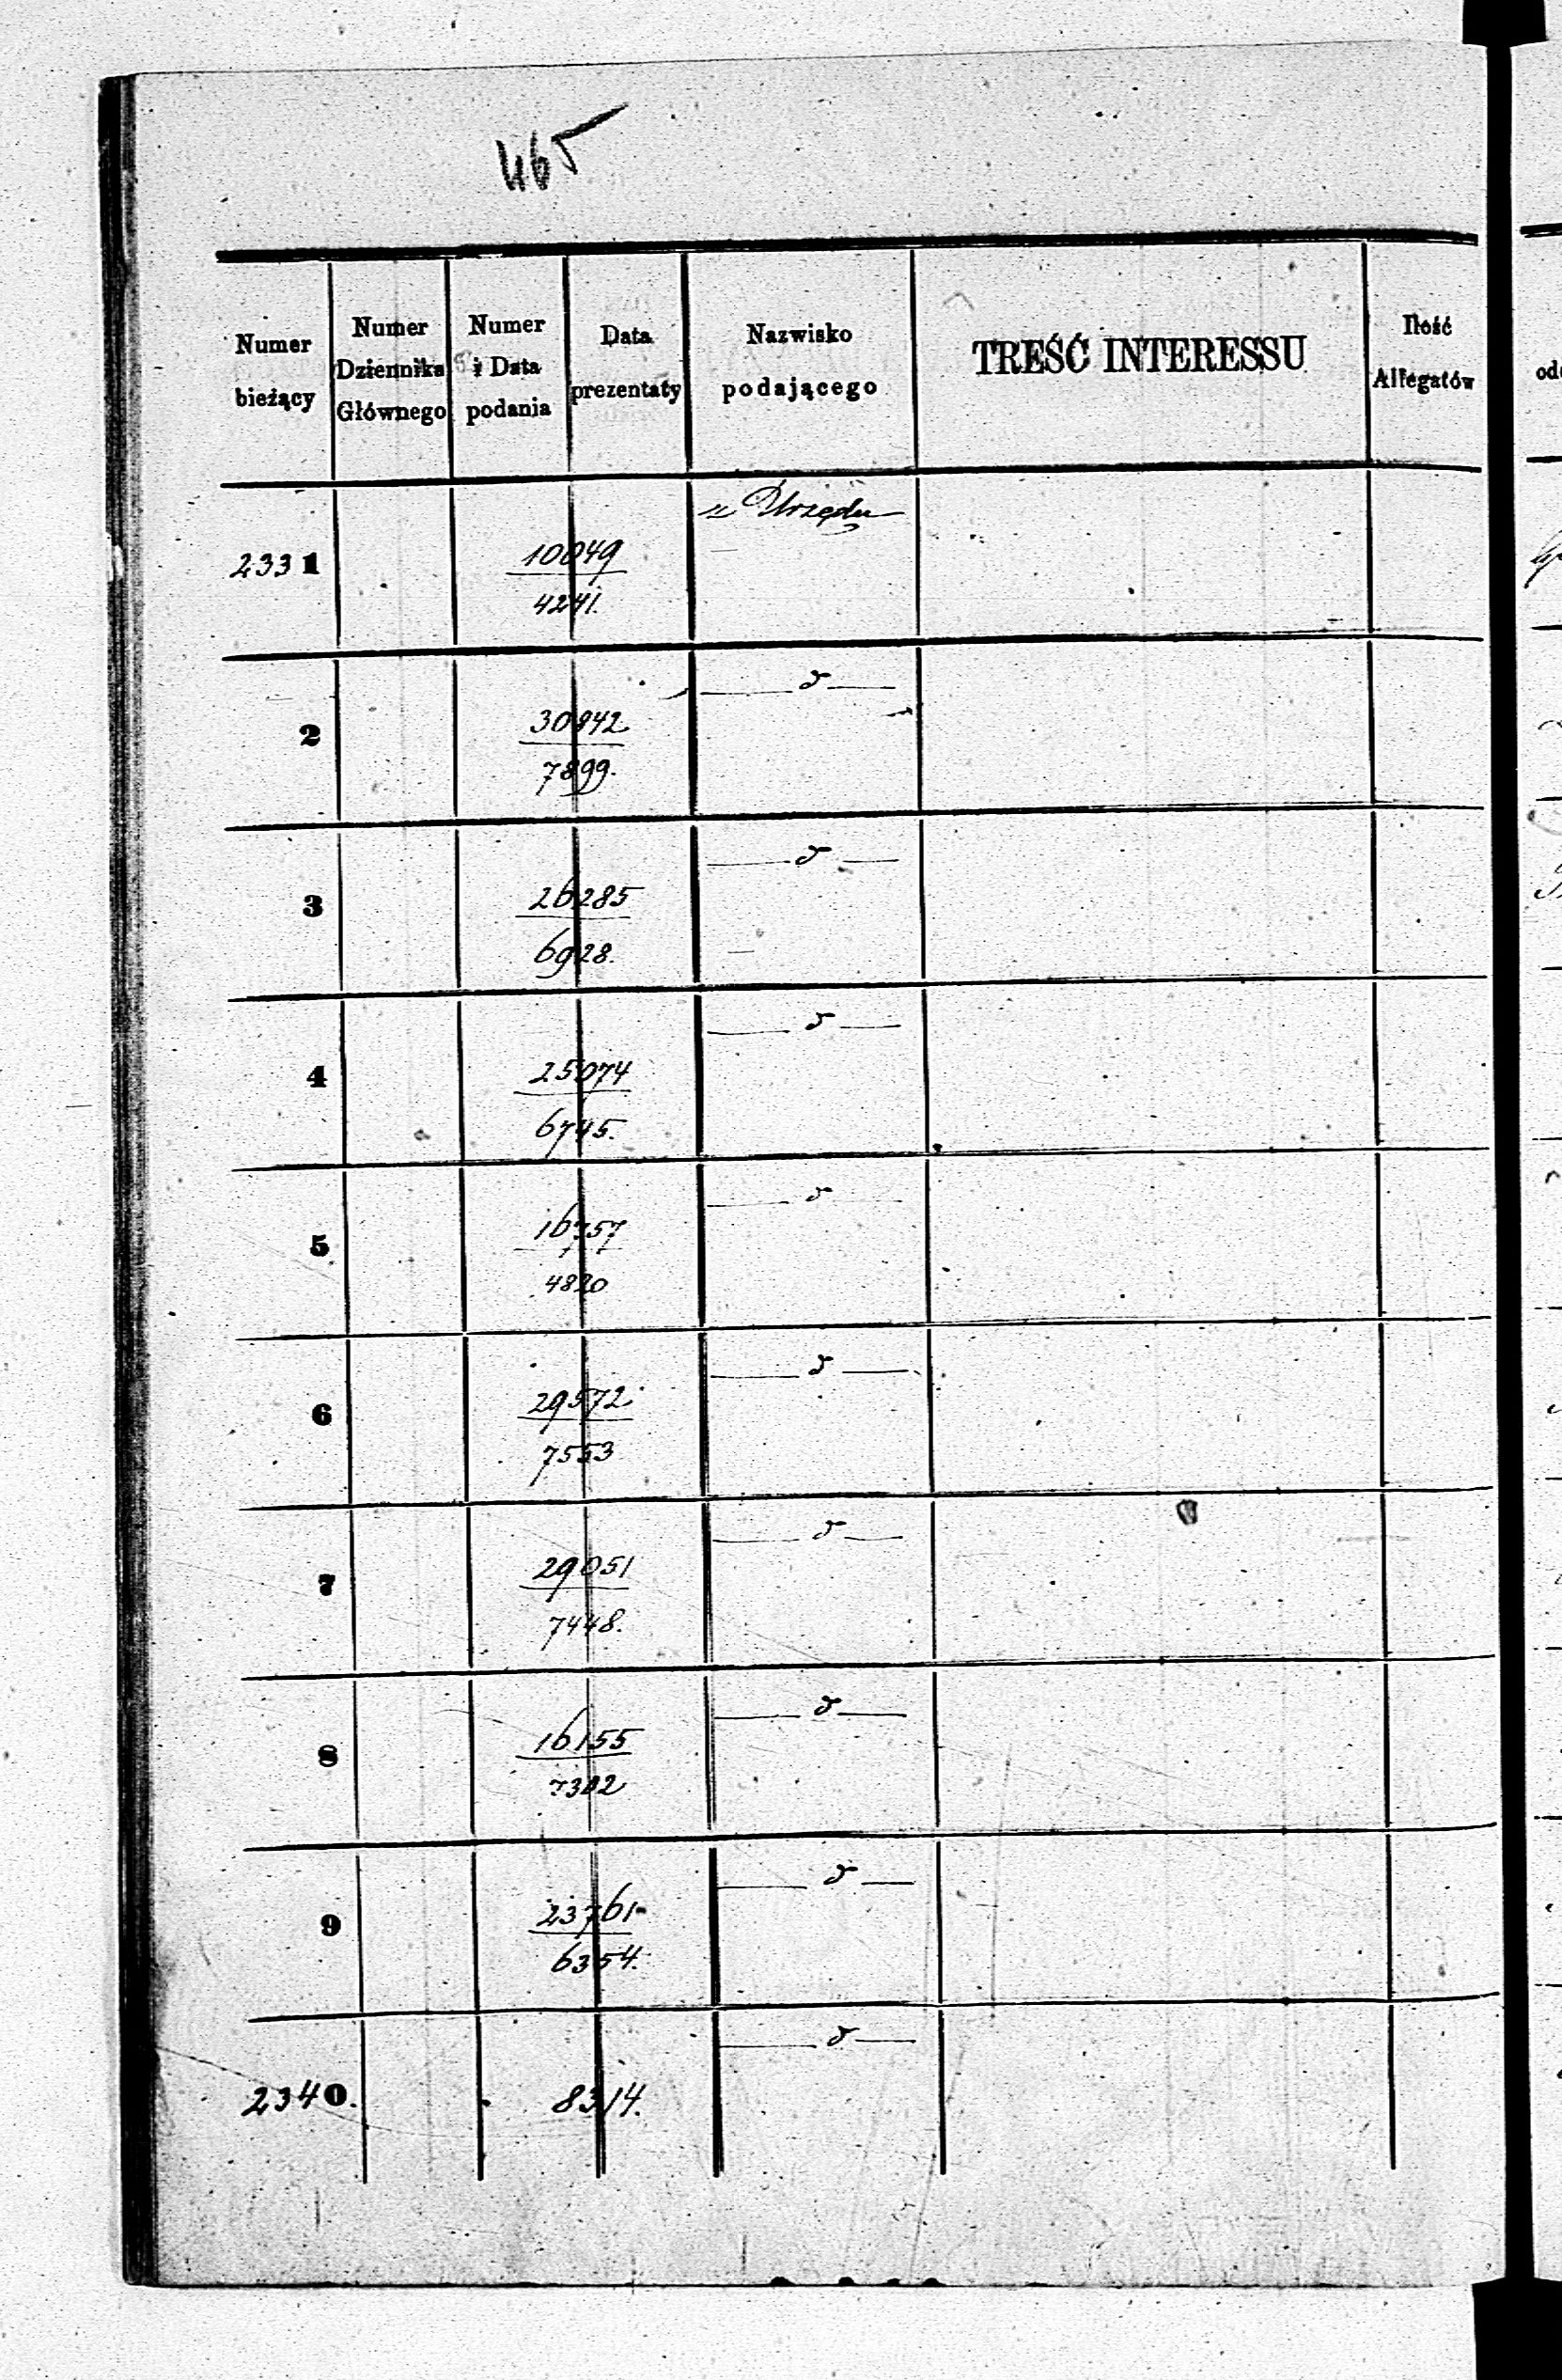 465
Numer bieżący
Numer Dziennika Głównego
Numer i Data podania
Data prezentaty
Nazwisko podającego
TREŚĆ INTERESSU
Ilość Allegatów
z Urzędu
2331
10049
4241.
δ
2
30842
7899.
δ
3
26285
6928.
δ
4
25074
6745.
δ
5
16757
4820
δ
6
29572
7553
δ
7
29051
7448.
δ
8
16155
7302
δ
9
23761
6354.
δ
2340.
8314.